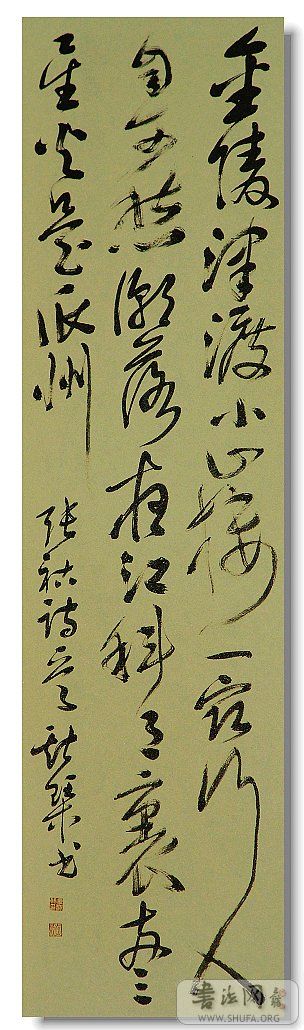 金陵津渡小山樓一宿行人
自可愁潮落夜江斜月裏兩三
星火是瓜州
張祜詩 書
書法网
WWW.SHUFA.ORG